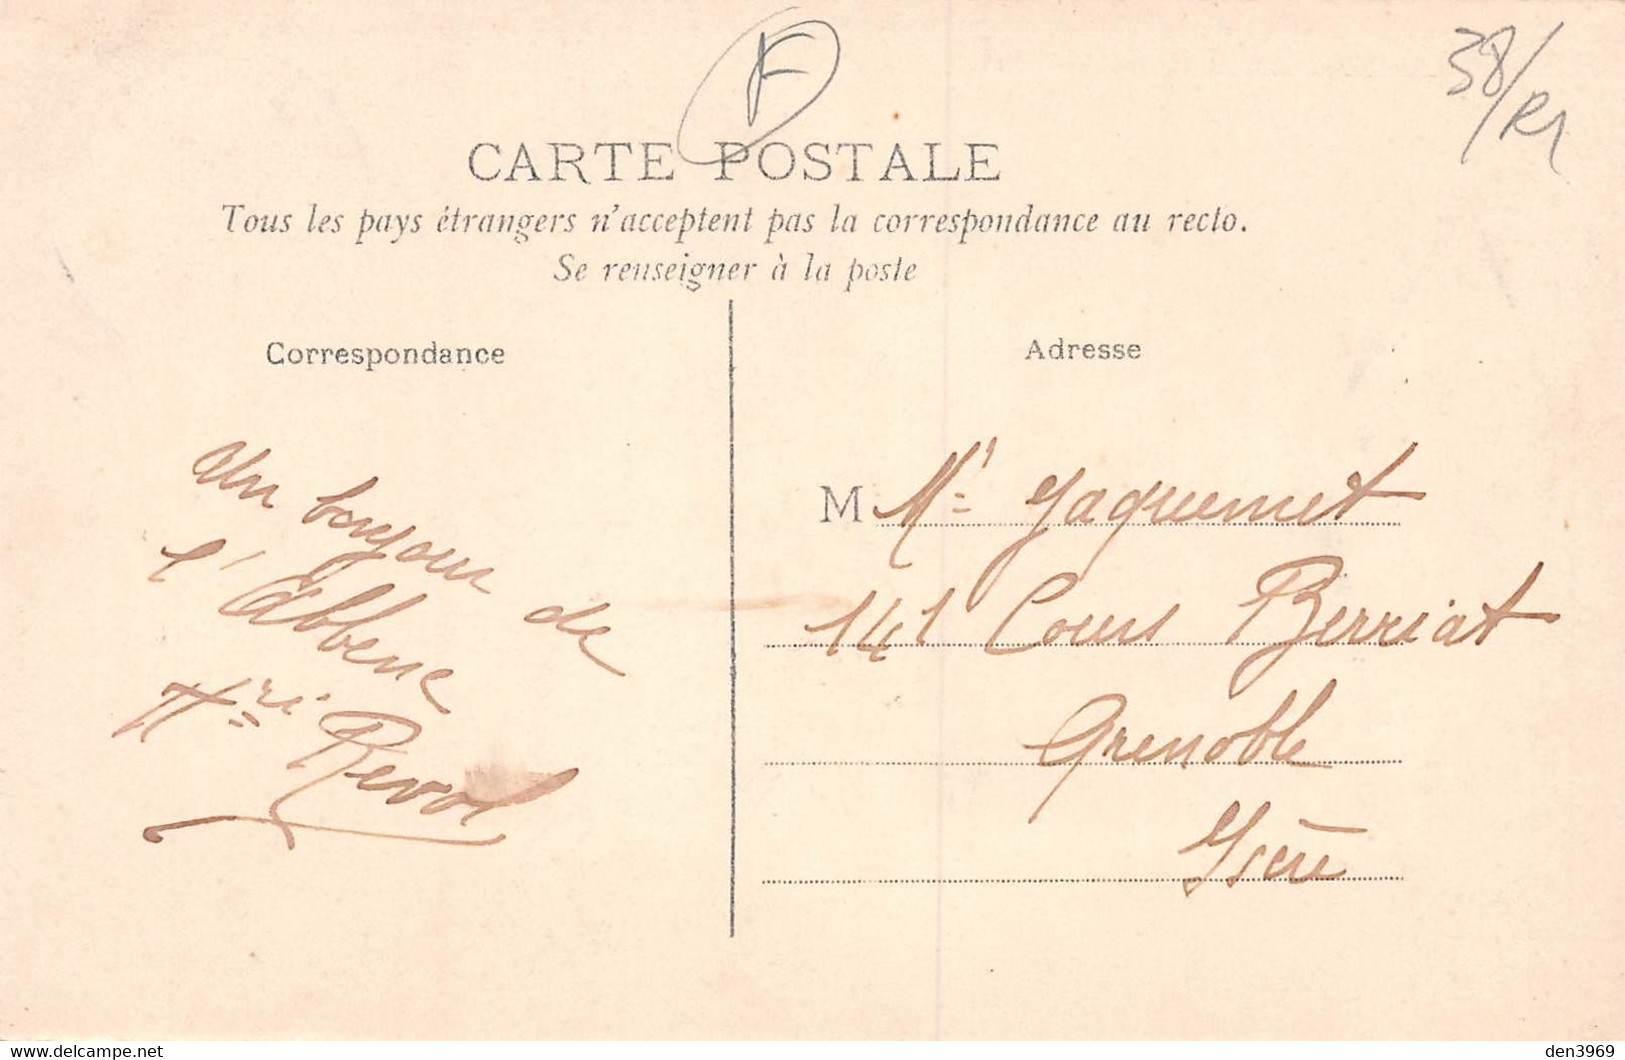 F
38/R1
CARTE POSTALE
Tous les pays étrangers n'acceptent pas la correspondance au recto.
Se renseigner à la poste
Correspondance
Un bonjour de
l'Abbene
Hri Revol
Adresse
M Mr Jaquemet
141 Cours Berriat
Grenoble
Isère
den3969